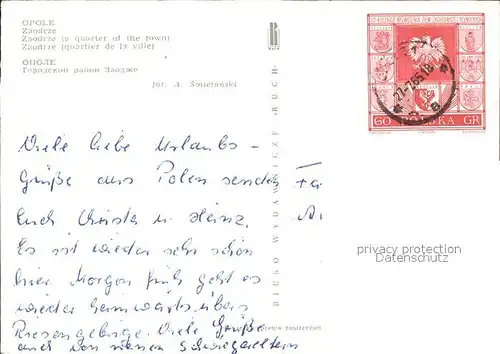 OPOLE
Zaodrze
Zaodrze (a quarter of the town)
Zaodrze (quartier de la ville)
ОПОЛЕ
Городской район Заодже
fot. A. Śmietański
Viele liebe Urlaubs-
Grüße aus Polen senden
Euch Christa u. Heinz.
Es ist wieder sehr schön
hier Morgen früh geht es
wieder heimwärts übers
Riesengebirge. Viele Grüße
auch von meinen Schwiegereltern
BIURO WYDAWNICZE „RUCH”
60 POLSKA GR
privacy protection
Datenschutz